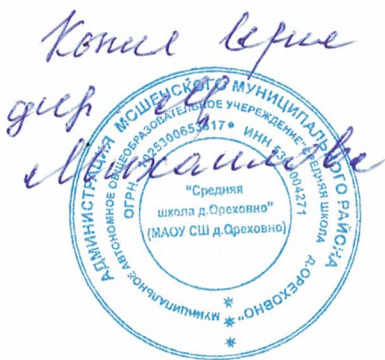 Копия верна
дир
Михайлова
АДМИНИСТРАЦИЯ МОШЕНСКОГО МУНИЦИПАЛЬНОГО РАЙОНА
МУНИЦИПАЛЬНОЕ АВТОНОМНОЕ ОБЩЕОБРАЗОВАТЕЛЬНОЕ УЧЕРЕЖДЕНИЕ "СРЕДНЯЯ ШКОЛА Д.ОРЕХОВНО"
ОГРН ИНН
"Средняя
школа д.Ореховно"
(МАОУ СШ д.Ореховно)